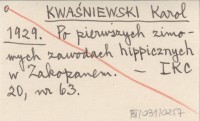 KWAŚNIEWSKI Karol
1929. Po pierwszych zimo-
wych zawodach hippicznych
w Zakopanem. — IKC
20, nr 63.